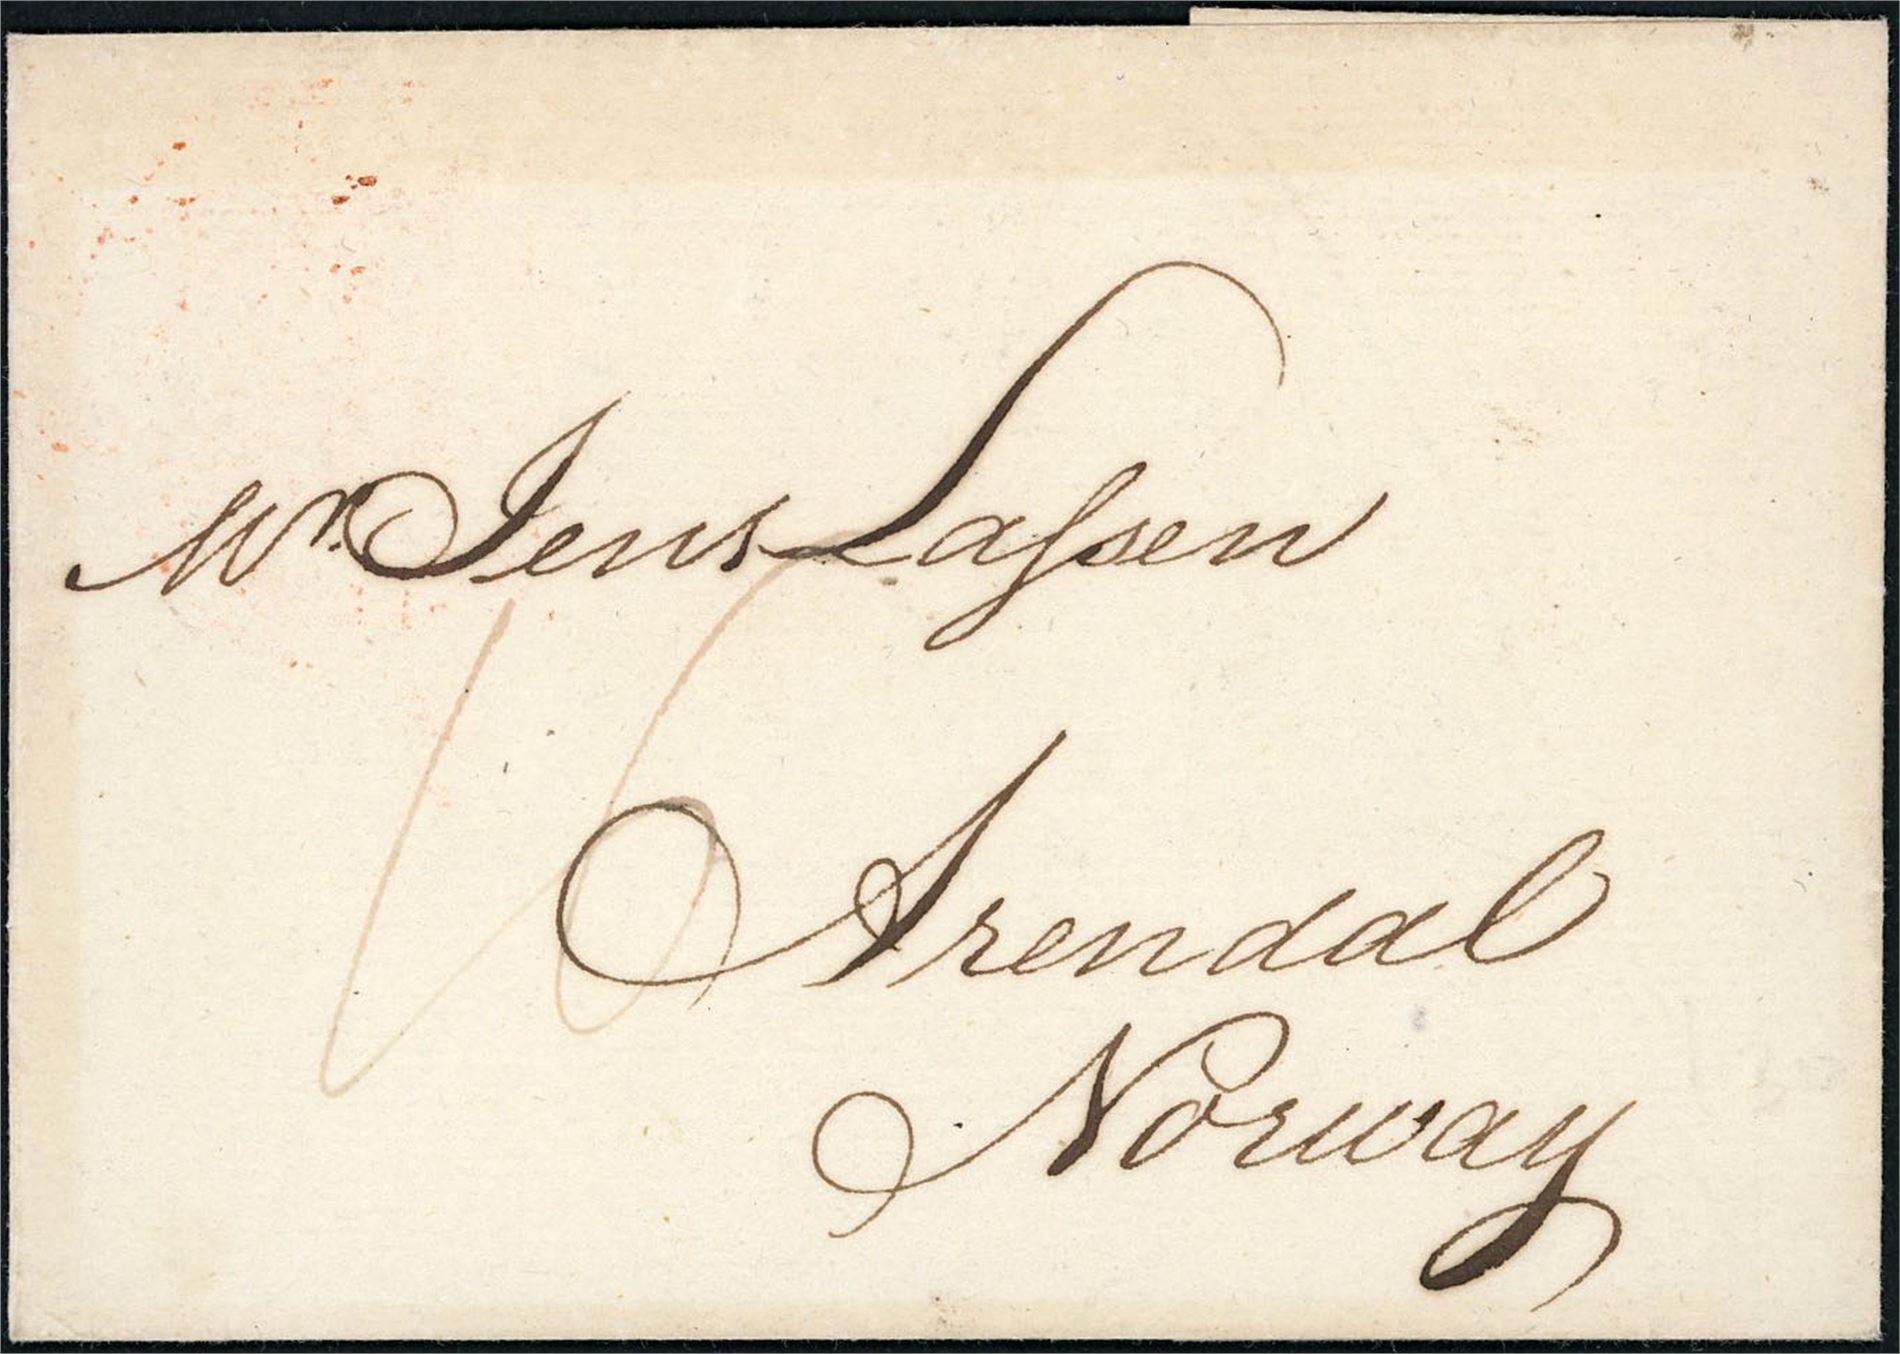 Mr. Jens Lassen
16
Arendal
Norway